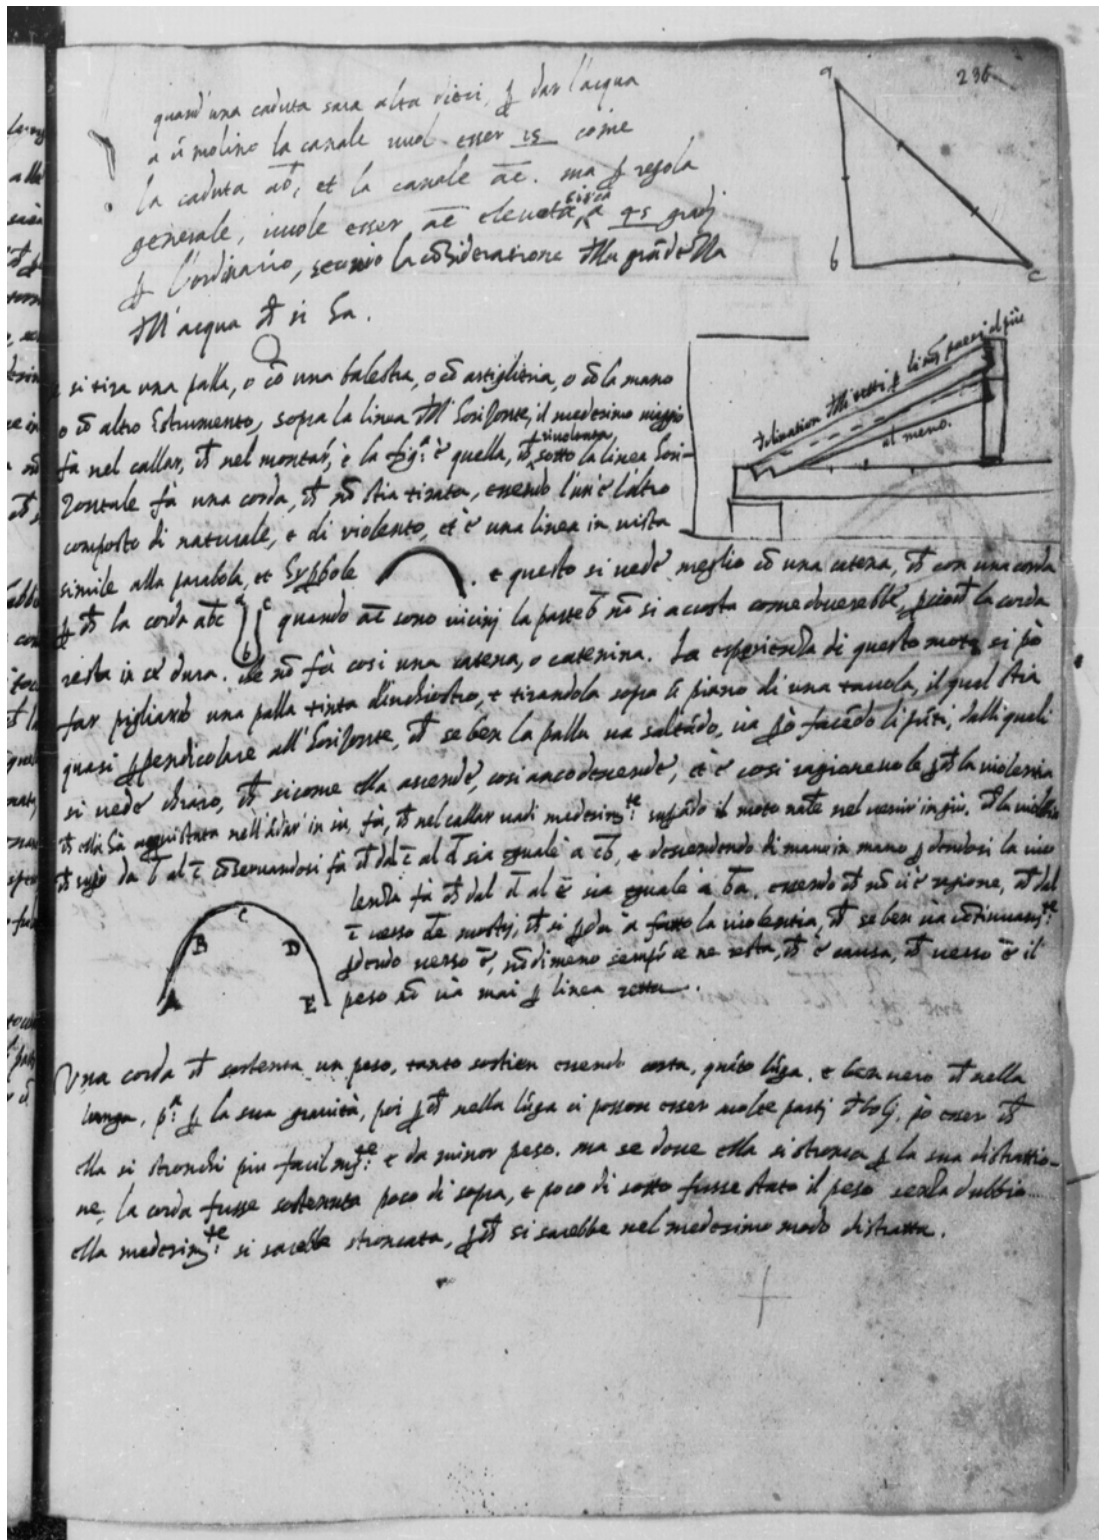 236
quand'una caduta sara alta dieci, ꝑ dar l'acqua
a ũ molino la canale vuol esser 15 come
la caduta ab, et la canale ac. ma ꝑ regola
generale, vuole esser ac elevata circa a 45 gradi
ꝑ l'ordinario, secondo la cõsideratione della grãdezza
dell'acqua che si ha.
a
b
c
si tira una palla, o cõ una balestra, o cõ artiglieria, o cõ la mano
o cõ altro instrumento, sopra la linea dell'horizonte, il medesimo viaggio
fà nel callar, che nel montar, e la figᵃ: è quella, che rivoltata sotto la linea hori-
zontale fà una corda, che nõ stia tirata, essendo l'un e l'altro
composto di naturale, e di violento, et è una linea in vista
simile alla parabola, et hyꝑbole . e questo si vede meglio cõ una catena, che con una corda
ꝑche la corda abc quando ac sono vicinj la parte b nõ si accosta come doverebbe, ꝑcioche la corda
a
c
b
resta in se dura. che nõ fà cosi una catena, o catenina. La esperienza di questo moto si pò
far pigliando una palla tinta d'inchiostro, e tirandola sopra ũ piano di una tavola, il qual stia
quasi ꝑpendicolare all'horizonte, che se ben la palla va saltãdo, va ꝑò facẽdo li pũti, dalli quali
si vede chiaro, che sicome ella ascende, cosi anco descende, et è cosi ragionevole ꝑche la violentia
che ella ha acquistata nell'ãdar in su, fà, che nel callar vadi medesimᵗᵉ: suꝑãdo il moto nãle nel venir in giù. che la violẽtia
che suꝑò da b al c cõservandosi fà che dal c al d sia eguale a cb, e descendendo di mano in mano ꝑdendosi la vio
lenza fà che dal d al e sia eguale a ba. essendo che nõ vi è ragione, che dal
c verso de mostrj, che si ꝑda à fatto la violentia, che se ben va cõtinuamᵗᵉ:
ꝑdendo verso e, nõdimeno sempre se ne resta, che è causa, che verso e il
peso nõ và mai ꝑ linea retta.
A
B
C
D
E
Una corda che sostenta un peso, tanto sostien essendo corta, quãto lũga. e ben vero che nella
lunga, pᵃ: ꝑ la sua gravità, poi ꝑche nella lũga vi possono esser molte partj debolj. pò esser che
ella si stronchi piu facilmᵗᵉ: e da minor peso. ma se dove ella si stronca ꝑ la sua distrattio-
ne, la corda fusse sostenuta poco di sopra, e poco di sotto fusse stato il peso senza dubbio
ella medesimᵗᵉ: si sarebbe stroncata, ꝑche si sarebbe nel medesimo modo distratta.